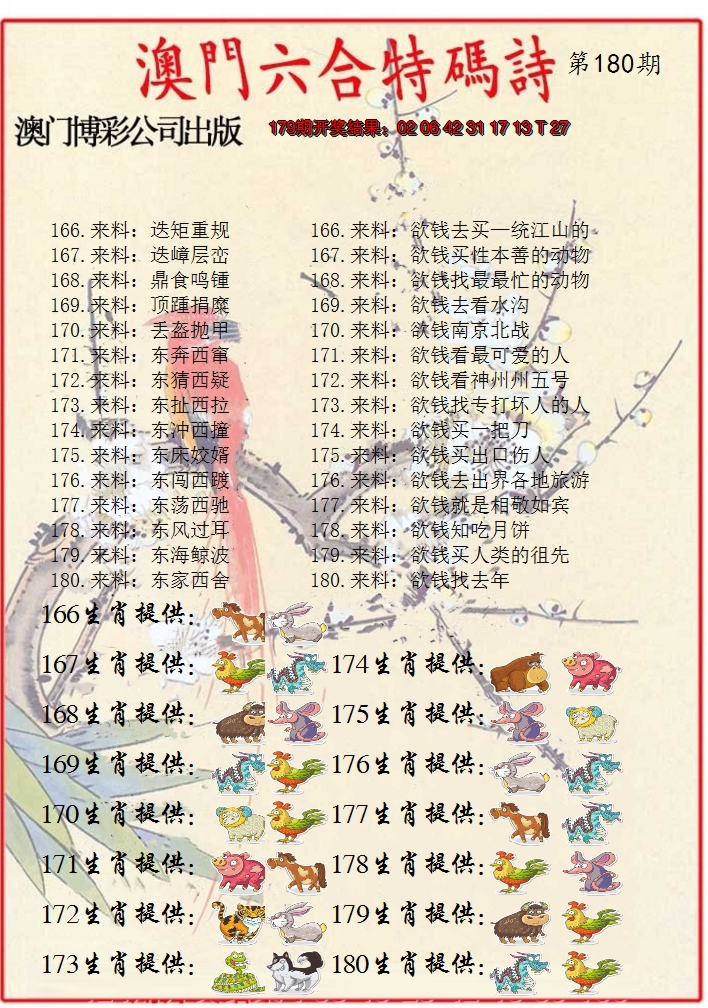 澳門六合特碼詩 第180期
澳门博彩公司出版 179期开奖结果：02 06 42 31 17 13 T 27
166.来料：迭矩重规 166.来料：欲钱去买一统江山的
167.来料：迭嶂层峦 167.来料：欲钱买性本善的动物
168.来料：鼎食鸣锺 168.来料：欲钱找最最忙的动物
169.来料：顶踵捐糜 169.来料：欲钱去看水沟
170.来料：丢盔抛甲 170.来料：欲钱南京北战
171.来料：东奔西窜 171.来料：欲钱看最可爱的人
172.来料：东猜西疑 172.来料：欲钱看神州州五号
173.来料：东扯西拉 173.来料：欲钱找专打坏人的人
174.来料：东冲西撞 174.来料：欲钱买一把刀
175.来料：东床姣婿 175.来料：欲钱买出口伤人
176.来料：东闯西踱 176.来料：欲钱去出界各地旅游
177.来料：东荡西驰 177.来料：欲钱就是相敬如宾
178.来料：东风过耳 178.来料：欲钱知吃月饼
179.来料：东海鲸波 179.来料：欲钱买人类的祖先
180.来料：东家西舍 180.来料：欲钱找去年
166生肖提供：
167生肖提供： 174生肖提供：
168生肖提供： 175生肖提供：
169生肖提供： 176生肖提供：
170生肖提供： 177生肖提供：
171生肖提供： 178生肖提供：
172生肖提供： 179生肖提供：
173生肖提供： 180生肖提供：